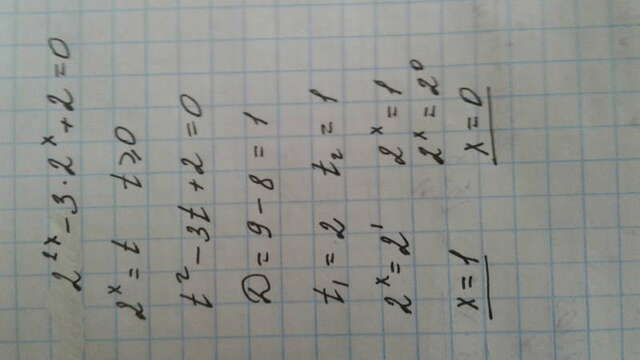 2^{2x} - 3 · 2^x + 2 = 0
2^x = t   t ⩾ 0
t^2 - 3t + 2 = 0
D = 9 - 8 = 1
t_1 = 2   t_2 = 1
2^x = 2^1   2^x = 1
2^x = 2^0
x = 1   x = 0